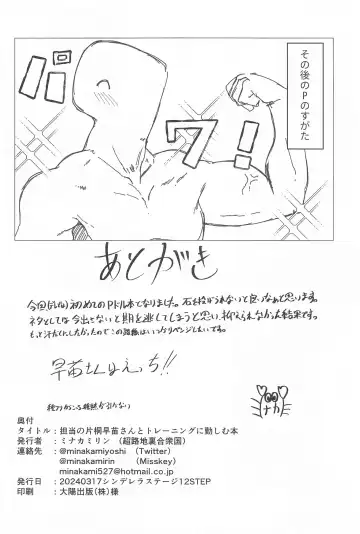 その後のPのすがた
パワー!
あとがき
今回(たぶん)初めてのPドル本となりました。石を投げられないと良いなぁと思います。
ネタとしては今出さないと期を逃してしまうと思い、抑えられなかった結果です。
早苗さんはえっち!!
ナカ
奥付
タイトル:担当の片桐早苗さんとトレーニングに勤しむ本
発行者 :ミナカミリン (超路地裏合衆国)
連絡先 :@minakamiyoshi (Twitter)
@minakamirin (Misskey)
minakami527@hotmail.co.jp
発行日 :20240317シンデレラステージ12STEP
印刷 :大陽出版(株)様